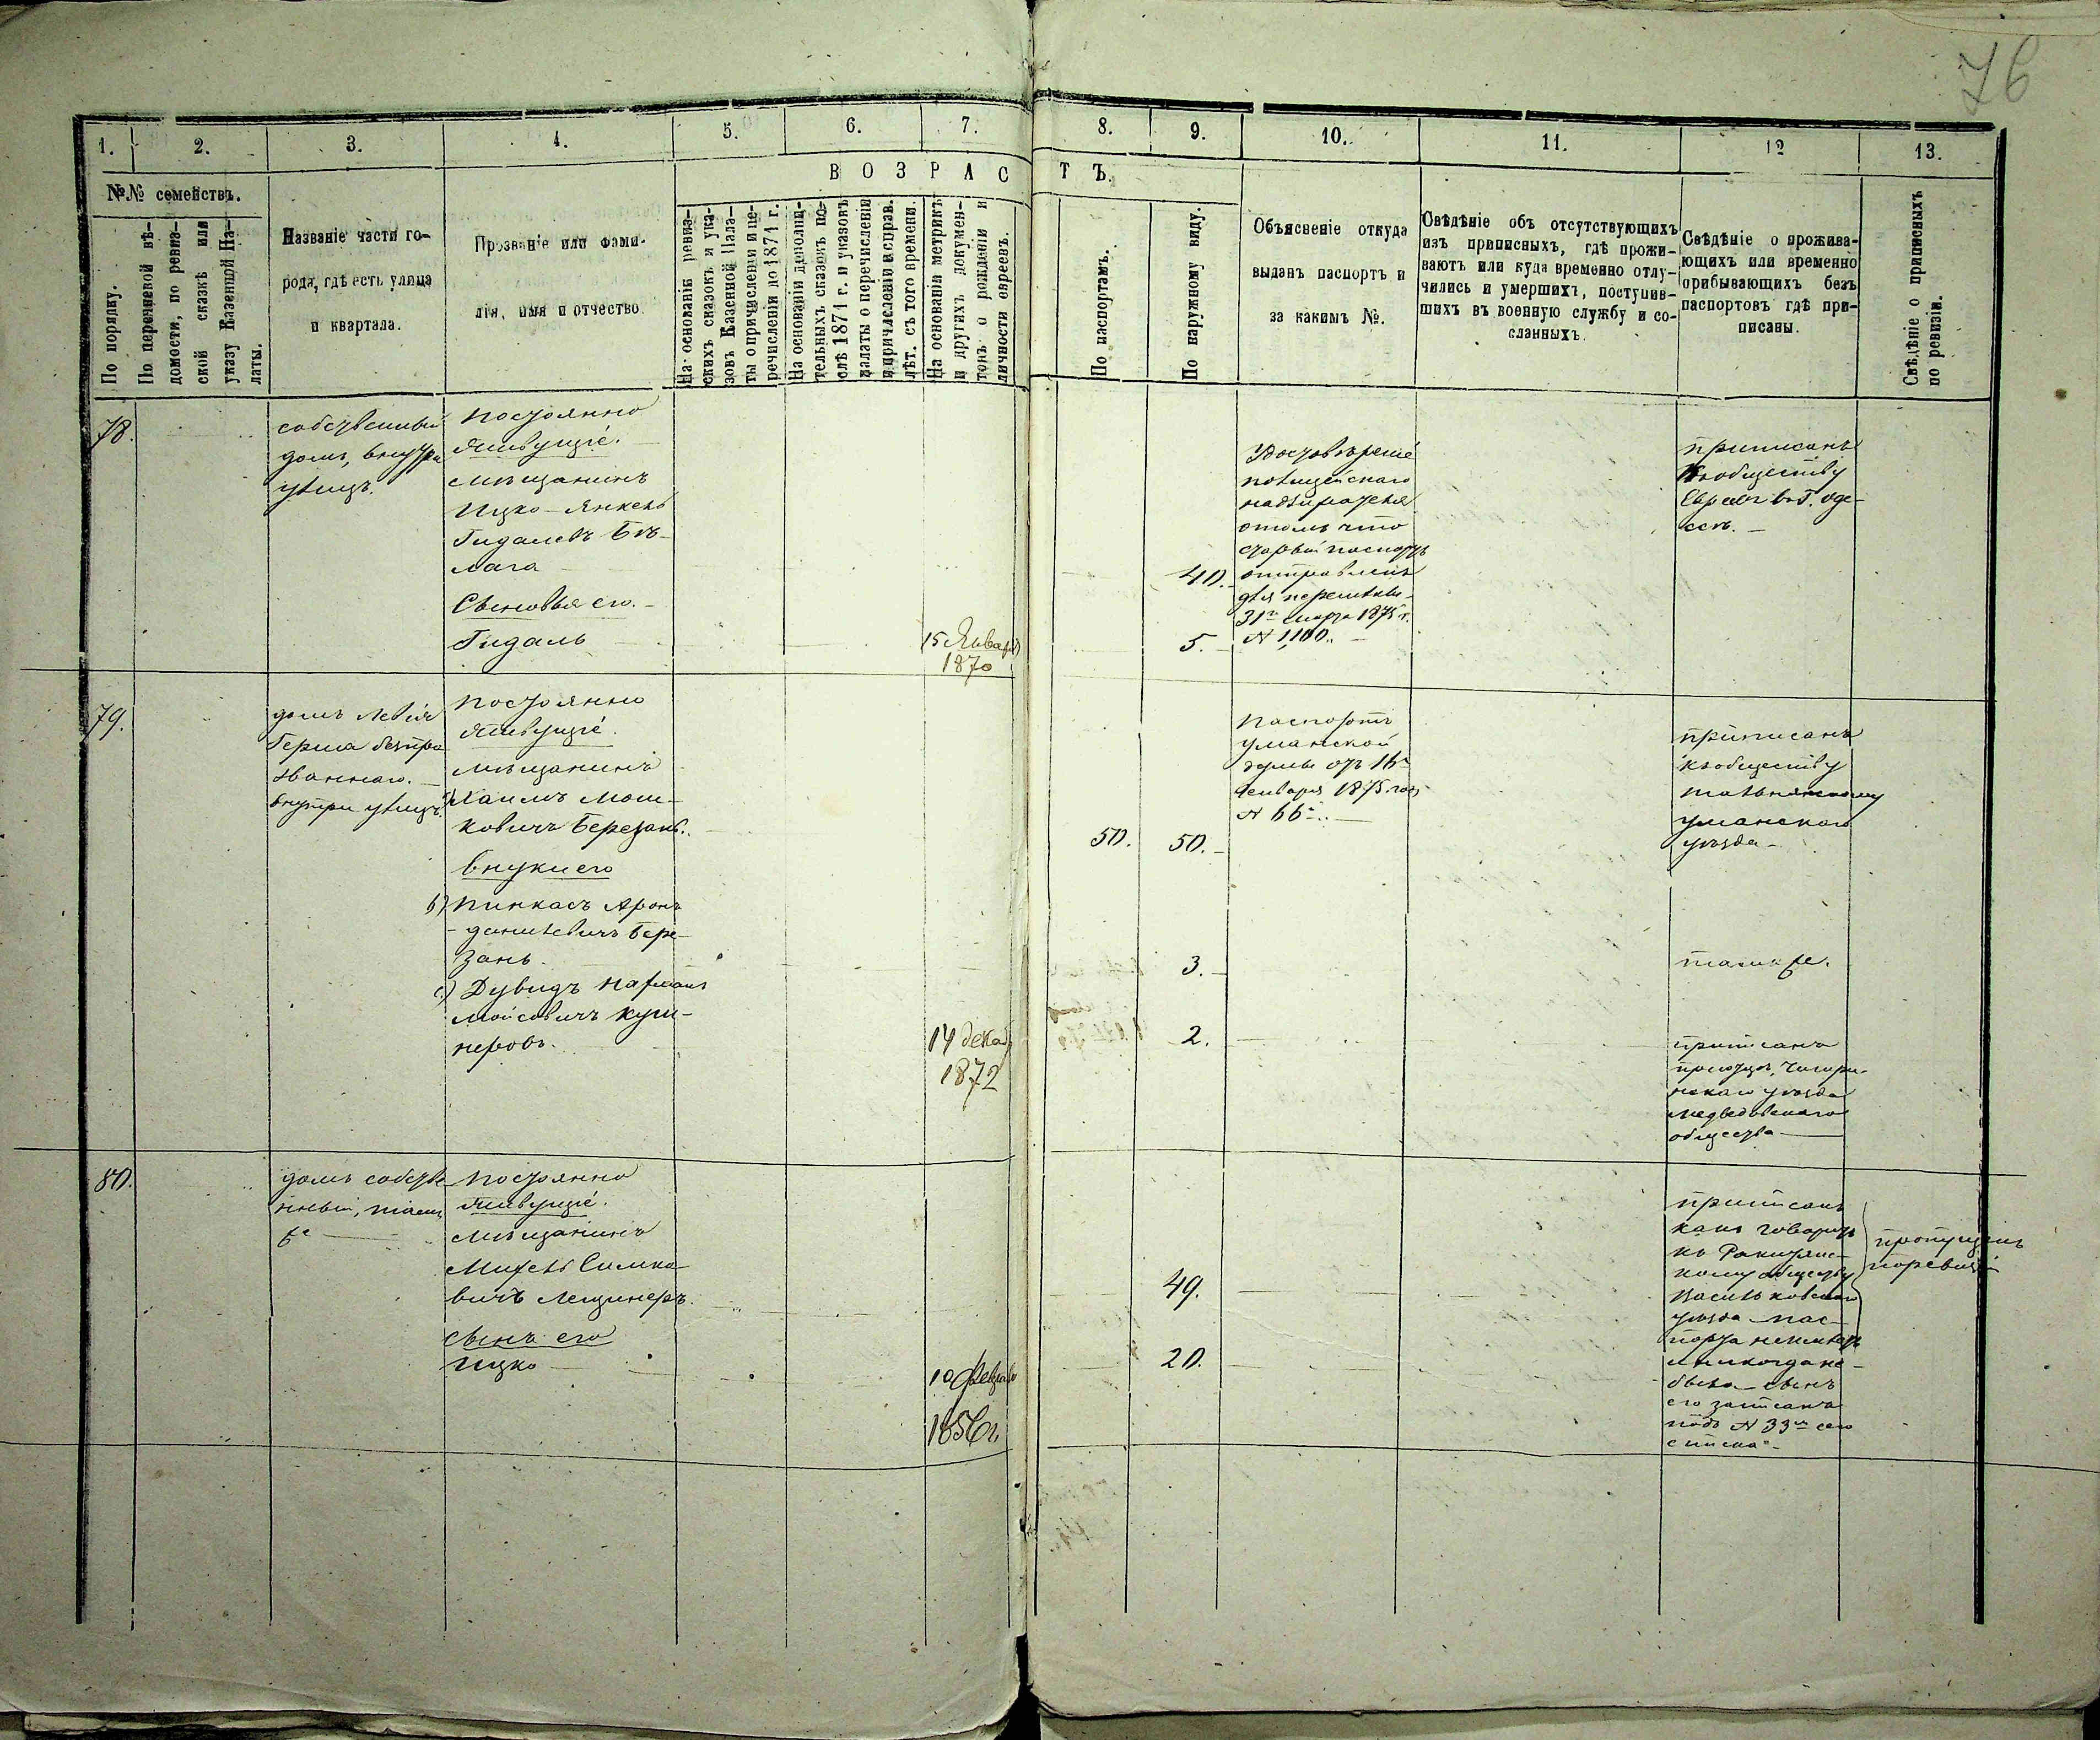 76
1. 2. 3. 4. 5. 6. 7. 8. 9. 10. 11. 12 13.
В О З Р А С Т Ъ.
№№ семействъ.
По порядку.
По перечневой вѣ-
домости, по ревиз-
ской сказкѣ или
указу Казенной Па-
латы.
Названіе части го-
рода, гдѣ есть улица
и квартала.
Прозваніе или фами-
лія, имя и отчество
На основаніи ревиз-
скихъ сказокъ и ука-
зовъ Казенной Пала-
ты о причисленіи и пе-
речисленіи до 1871 г.
На основаніи дополни-
тельныхъ сказокъ по-
слѣ 1871 г. и указовъ
палаты о перечисленіи
и причисленіи и справ.
лѣт. съ того времени.
На основаніи метрикъ
и другихъ докумен-
товъ о рожденіи и
личности евреевъ.
По паспортамъ.
По наружному виду.
Объясненіе откуда
выданъ паспортъ и
за какимъ №.
Свѣдѣніе объ отсутствующихъ
изъ приписныхъ, гдѣ прожи-
ваютъ или куда временно отлу-
чились и умершихъ, поступив-
шихъ въ военную службу и со-
сланныхъ.
Свѣдѣніе о прожива-
ющихъ или временно
прибывающихъ безъ
паспортовъ гдѣ при-
писаны.
Свѣдѣніе о приписныхъ
по ревизіи.
78.
собственный
домъ, внутри
улицъ.
Постоянно
живущіе.
мѣщанинъ
Ицко-Янкель
Гидалевъ Бѣ-
лага
Сыновья его.
Гидаль
15 Января
1870
40.
5.
Удостовѣреніе
полицейскаго
надзирателя
отомъ что
старый паспортъ
отправленъ
для перемѣны
31го марта 1875 г.
№ 1,100.
приписанъ
Кообществу
Евреевъ въ Г. Оде-
ссѣ.
79.
домъ Левія
Герша безпро
званнаго.
внутри улицъ.
Постоянно
живущіе.
мѣщанинъ
Хаимъ Мош-
ковичъ Березань.
внуки его
b) Пинкасъ Аронъ
-даниелевичъ Бере-
зань.
c) Дувидъ Нафтанъ
Мойсовичъ Куш-
неровъ.
14 декаб
1872
50. 50.
3.
2.
Паспортъ
уманской
думы отъ 16го
Января 1875 года
№ 66й.
приписанъ
кьобществу
тальнянскому
уманскаго
уѣзда
также.
приписанъ
Чигири-
нскаго уѣзда
медведовскаго
общества
80.
домъ собстве
нный, такъ
же
Постоянно
живущіе.
мѣщанинъ
Михель Симко
вичъ Лещинеръ.
сынъ его
Ицко
10 февраля
1856 г.
49.
20.
приписанъ
какъ говоритъ
къ Ракитянс-
кому обществу
Васильковскаго
уѣзда пас-
порта неимѣетъ
и никогда не
было сынъ
его записанъ
подъ № 33м сего
списка
пропущенъ
поревизіи